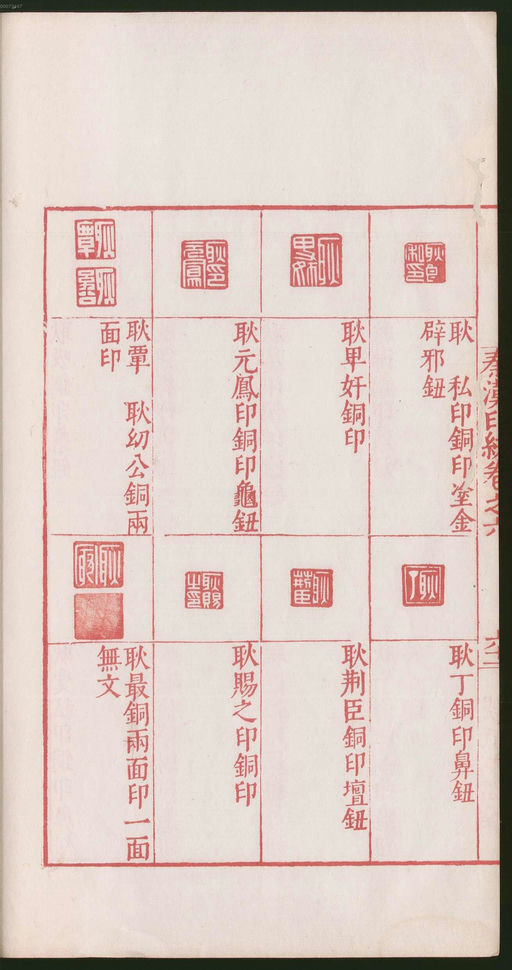 秦漢印統卷之六
耿　私印銅印塗金
辟邪鈕
耿甲奸銅印
耿元鳳印銅印龜鈕
耿覃　耿幼公銅兩
面印
耿丁銅印鼻鈕
耿荆臣銅印壇鈕
耿賜之印銅印
耿最銅兩面印一面
無文